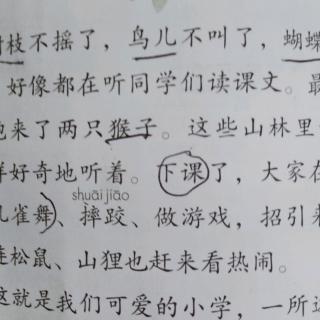 树枝不摇了，鸟儿不叫了，蝴蝶
好像都在听同学们读课文。最
跑来了两只猴子。这些山林里
样好奇地听着。下课了，大家在
shuāi jiāo
孔雀舞、摔跤、做游戏，招引来
连松鼠、山狸也赶来看热闹。
这就是我们可爱的小学，一所